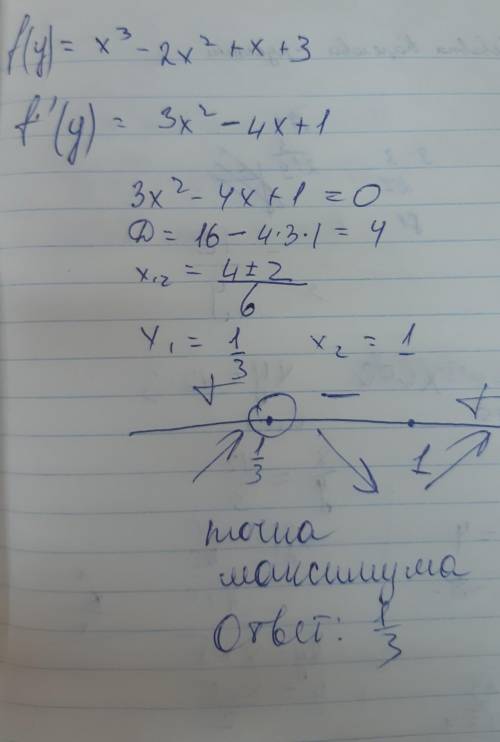 f(y) = x³ - 2x² + x + 3
f'(y) = 3x² - 4x + 1
3x² - 4x + 1 = 0
D = 16 - 4·3·1 = 4
x₁,₂ = (4 ± 2)/6
x₁ = 1/3 x₂ = 1
+ − +
1/3 1
точка
максимума
Ответ: 1/3